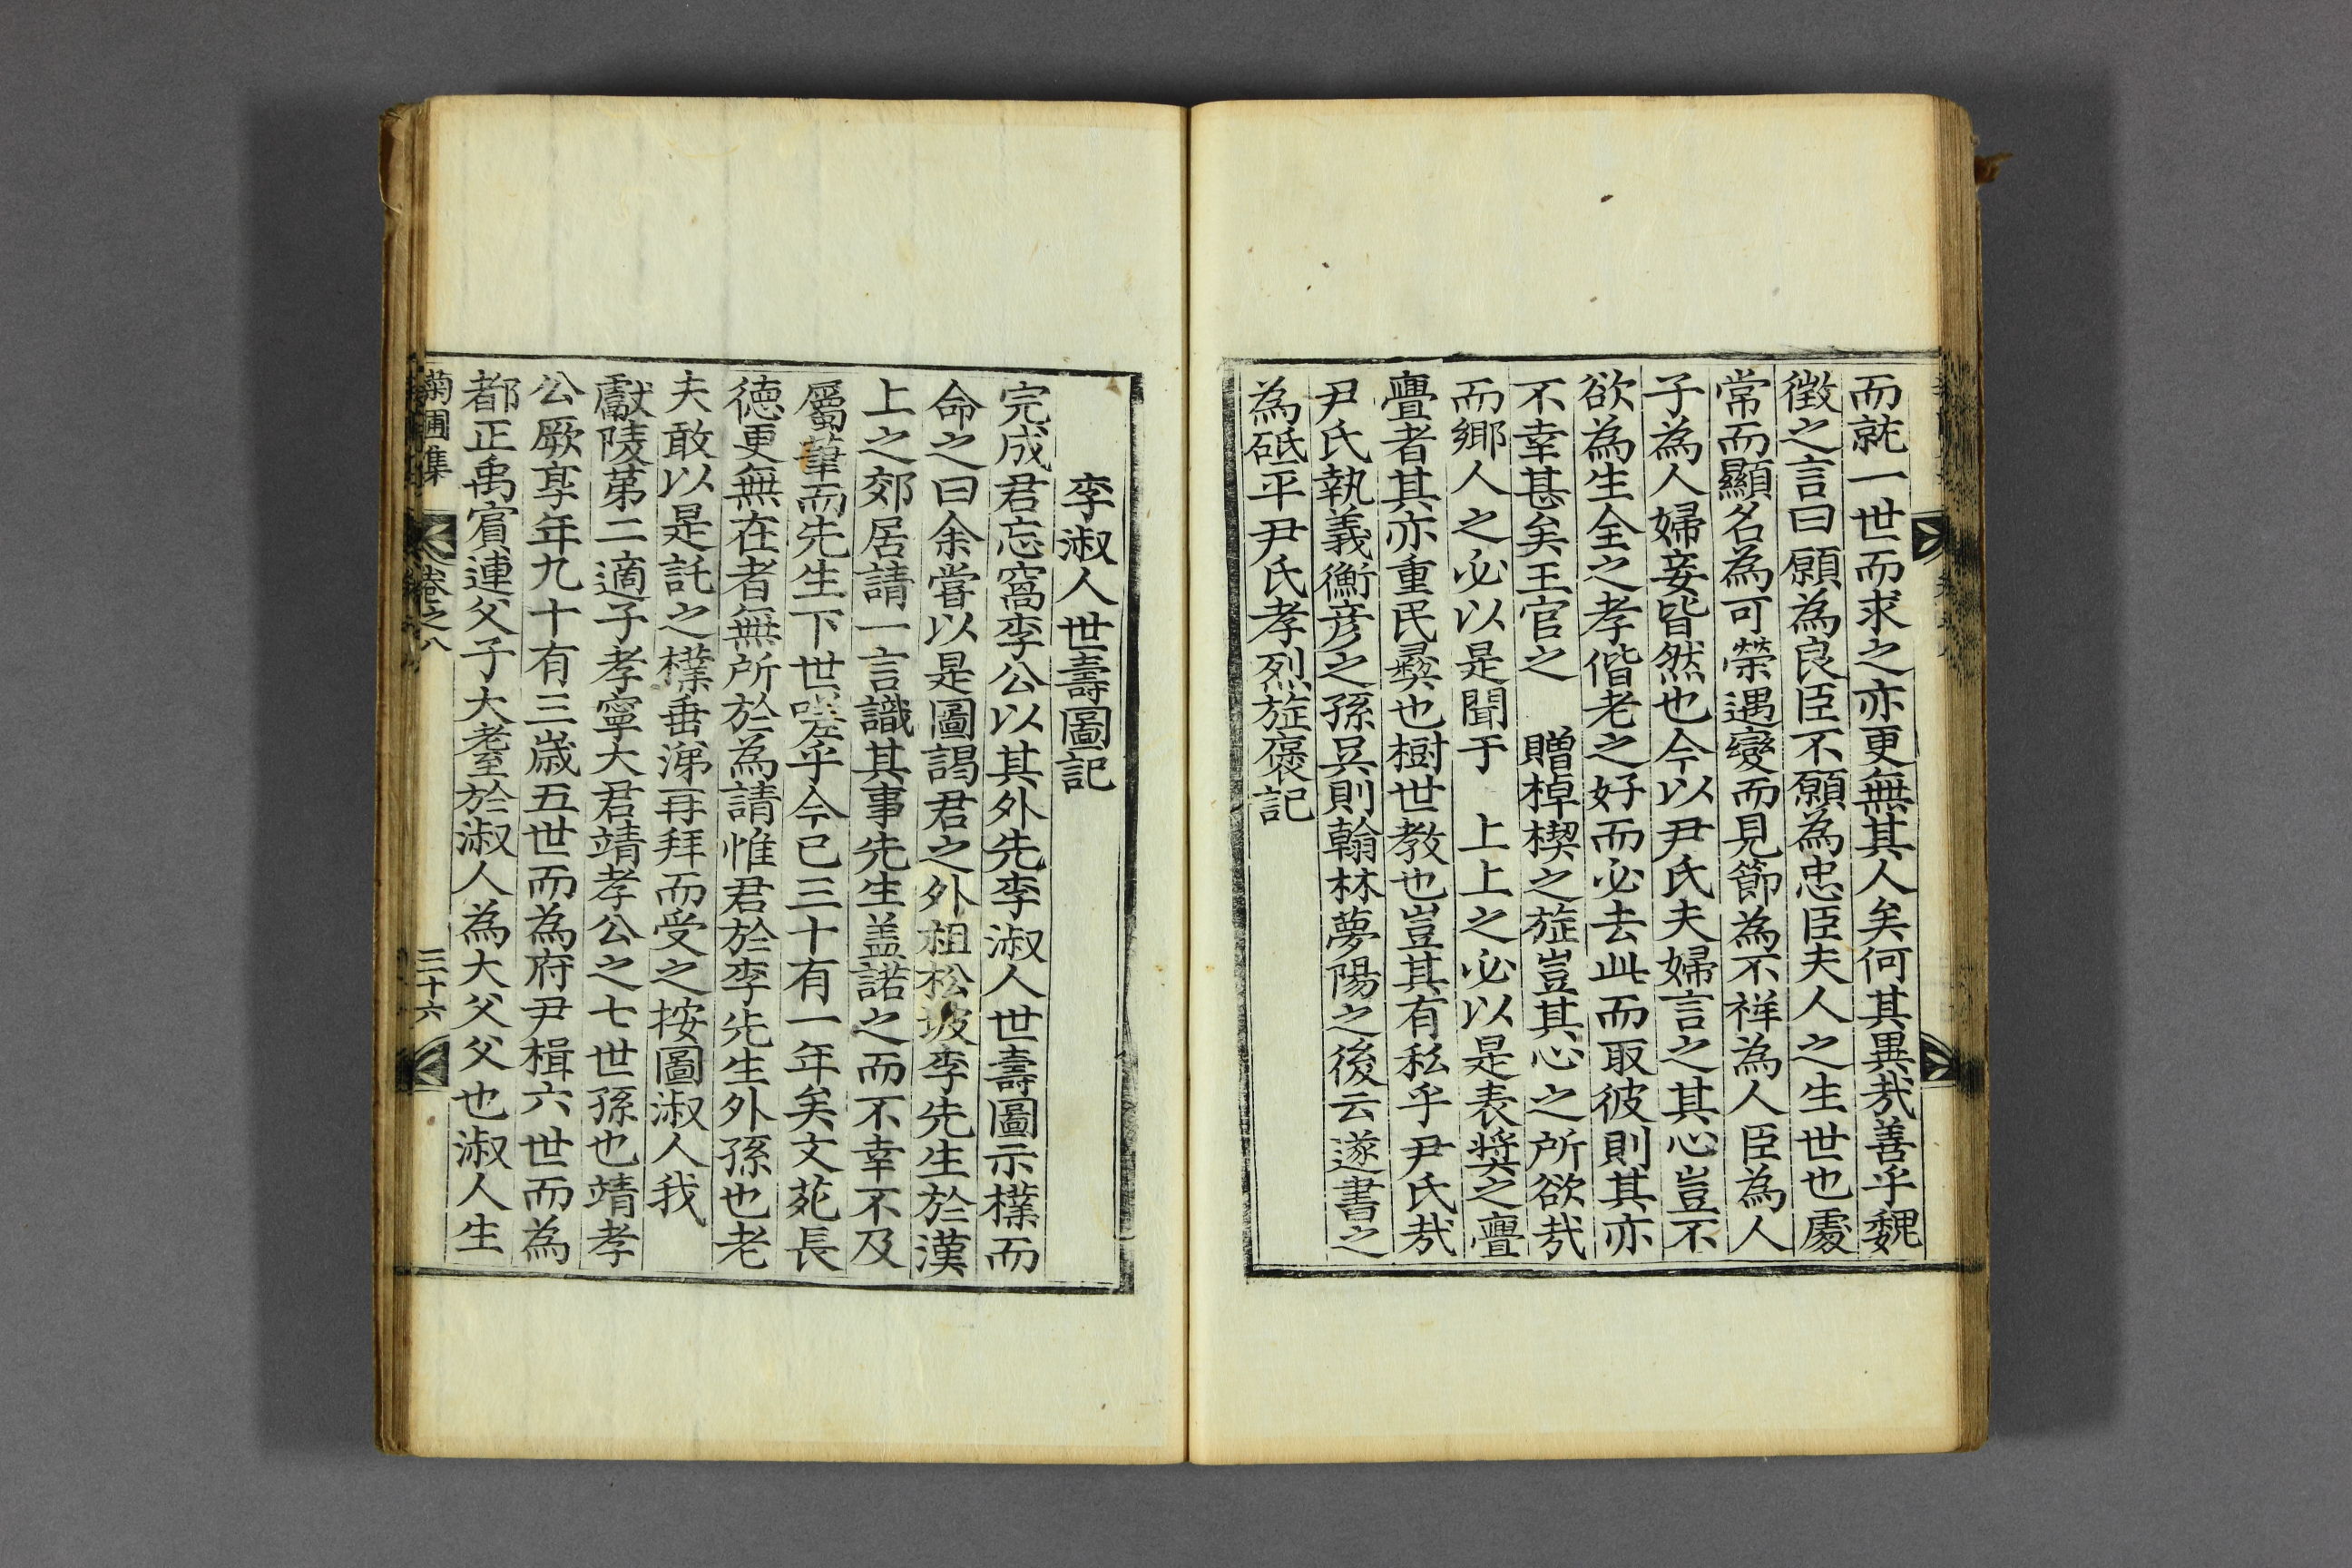 而就一世而求之亦更無其人矣何其異㢤善乎魏
徵之言曰願為良臣不願為忠臣夫人之生世也處
常而顯名為可榮遇變而見節為不祥為人臣為人
子為人婦妾皆然也今以尹氏夫婦言之其心豈不
欲為生全之孝偕老之好而必去此而取彼則其亦
不幸甚矣王官之　贈棹楔之旌豈其心之所欲㢤
而鄉人之必以是聞于　上上之必以是表奬之亹
亹者其亦重民彛也樹世教也豈其有私乎尹氏㢤
尹氏執義衡彦之孫吳則翰林夢陽之後云遂書之
為砥平尹氏孝烈旌褒記
李淑人世壽圖記
完成君忘窩李公以其外先李淑人世壽圖示檏而
命之曰余嘗以是圖謁君之外祖松坡李先生於漢
上之郊居請一言識其事先生盖諾之而不幸不及
屬筆而先生下世嗟乎今已三十有一年矣文苑長
德更無在者無所於為請惟君於李先生外孫也老
夫敢以是託之檏垂涕再拜而受之按圖淑人我
獻陵第二適子孝寧大君靖孝公之七世孫也靖孝
公厥享年九十有三歳五世而為府尹楫六世而為
都正禹賓連父子大耋於淑人為大父父也淑人生
菊圃集
卷之八
三十六